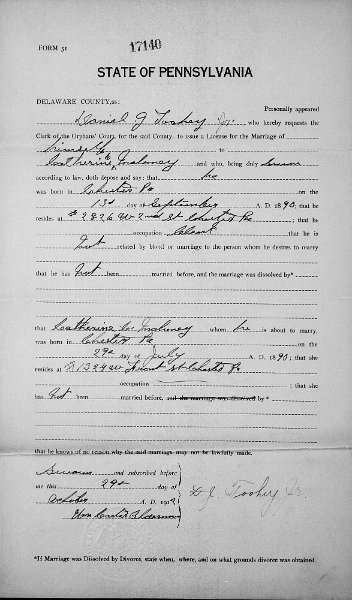 FORM 51
17140
STATE OF PENNSYLVANIA
DELAWARE COUNTY, ss:
Personally appeared
Daniel J Toohey Jr. who hereby requests the
Clerk of the Orphans' Court, for the said County, to issue a License for the Marriage of
himself
to Catherine Mahoney and who, being duly sworn
according to law, doth depose and say: that he
was born in Chester Pa on the
13d day of September A. D. 1890; that he
resides at # 2826 W 2nd St Chester Pa; that he
occupation Clerk that he is
Not related by blood or marriage to the person whom he desires to marry
that he has Not been married before, and the marriage was dissolved by*
that Catherine Mahoney whom he is about to marry,
was born in Chester Pa on the
29d day of July A. D. 1890; that she
resides at 1324 W St Chester Pa
occupation ; that she
has Not been married before, and the marriage was dissolved by*
that he knows of no reason why the said marriage may not be lawfully made.
Sworn and subscribed before
me this 29d day of
October A. D. 191
Alderman
D. J. Toohey Jr.
*If Marriage was Dissolved by Divorce, state when, where, and on what grounds divorce was obtained.